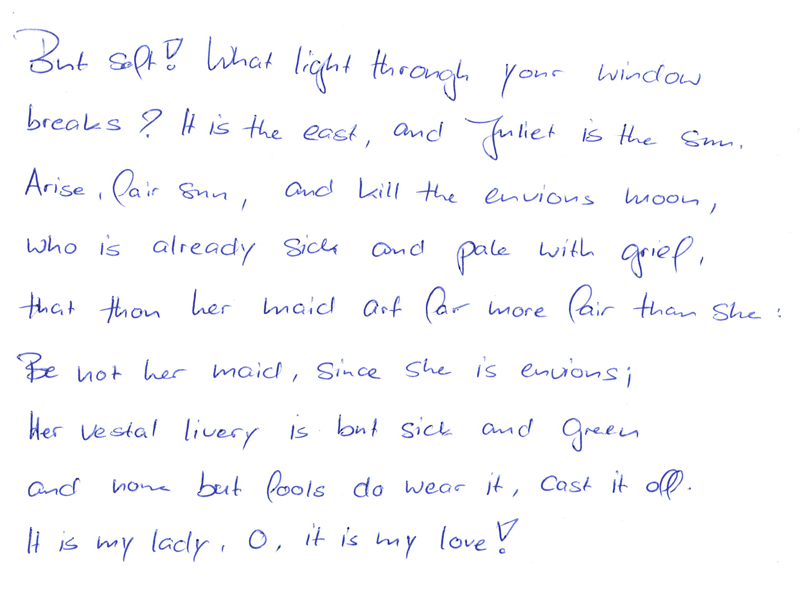 But soft! What light through your window
breaks? It is the east, and Juliet is the sun.
Arise, fair sun, and kill the envious moon,
who is already sick and pale with grief,
that thou her maid art far more fair than she:
Be not her maid, since she is envious;
Her vestal livery is but sick and green
and none but fools do wear it, cast it off.
It is my lady, O, it is my love!